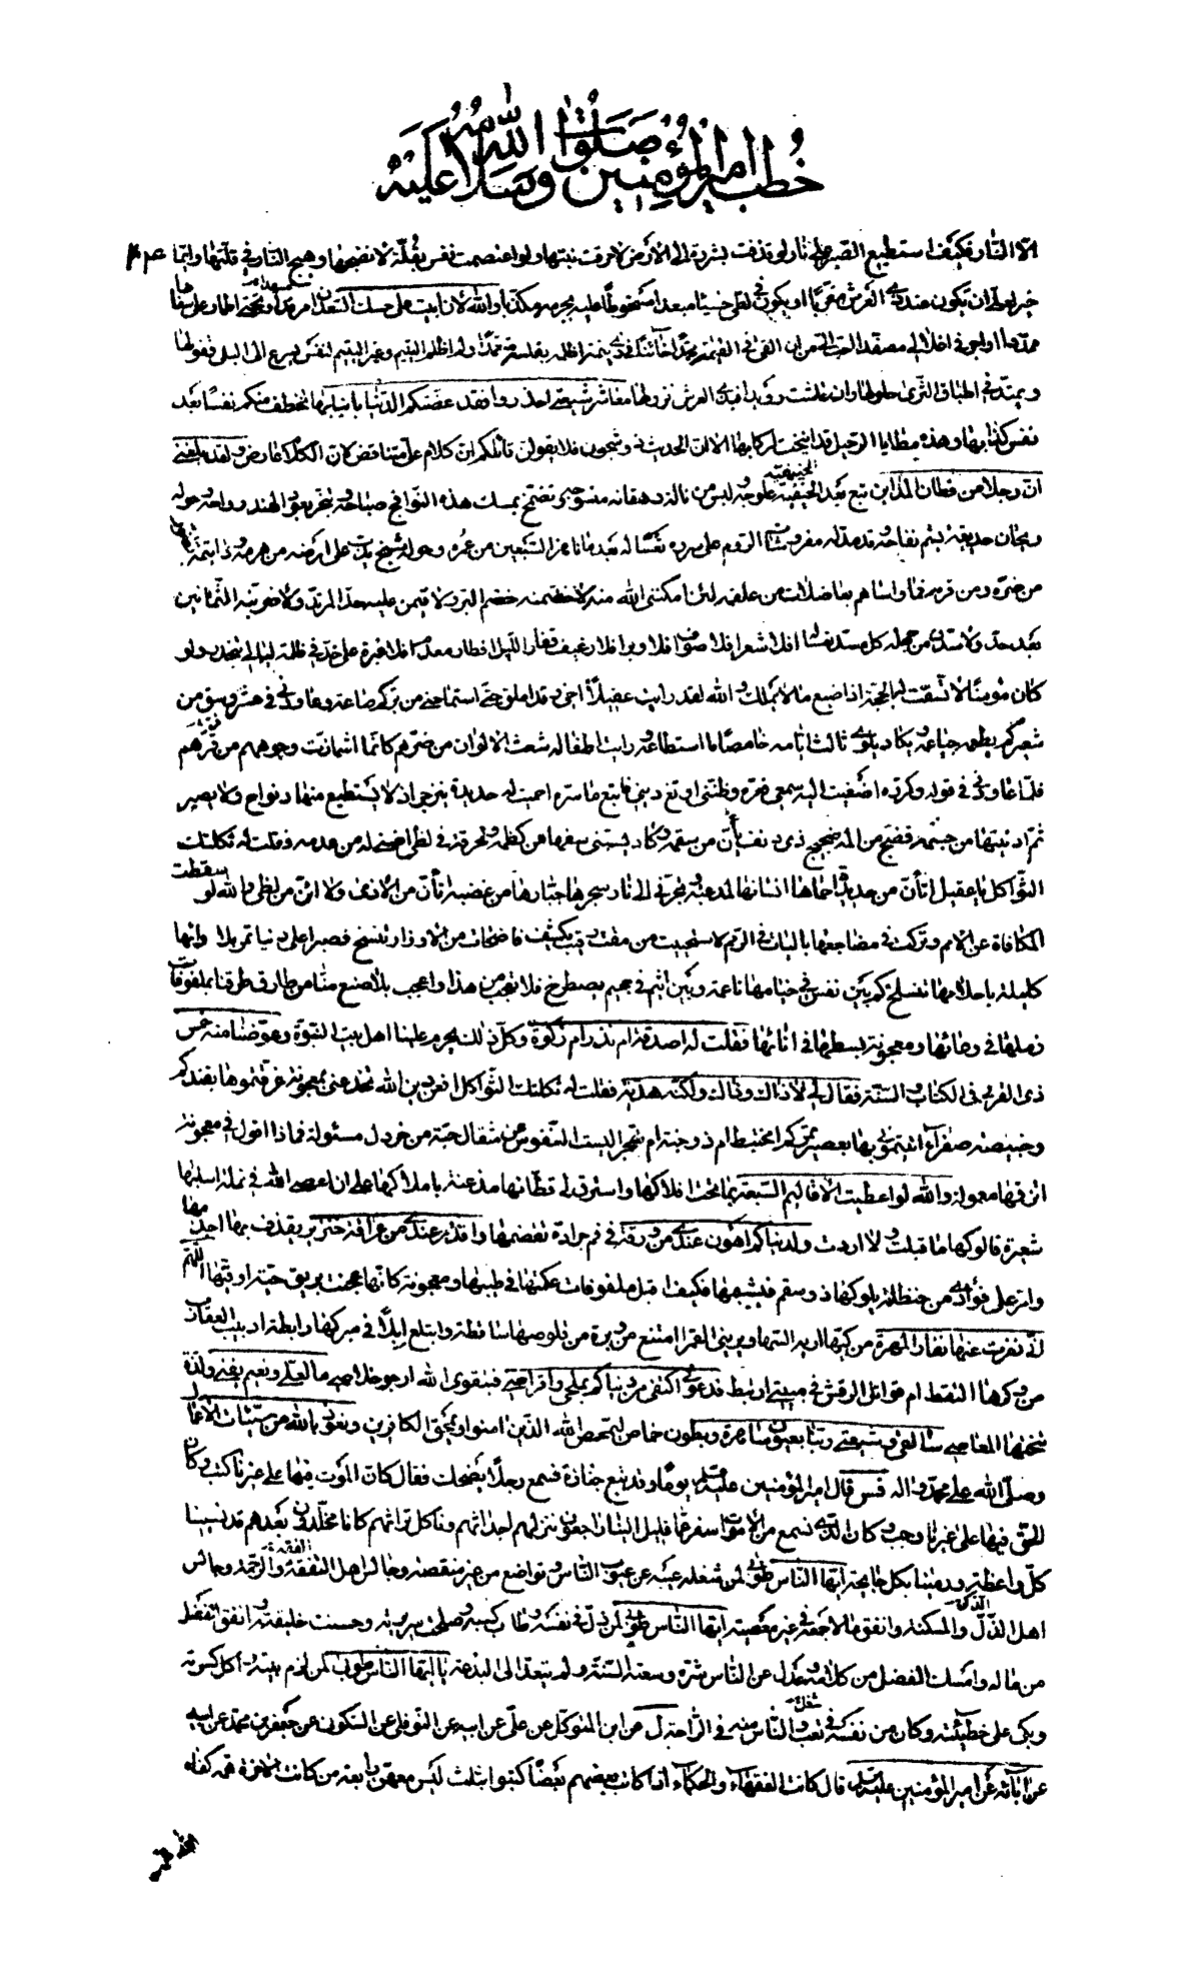 خطب امير المؤمنين صلوات الله وسلامه عليه
الا النار فكيف استطيع الصبر على نار لو قذفت بشررة الى الارض لاحرقت نبتها ولو اعتصمت نفس بقلة لانضجها وهج النار في قلتها وانما
خير لعلي ان يكون عند ذي العرش مقربا او يكون في لظى خسيئا مبعدا مسخوطا عليه بجرمه مكذبا والله لان ابيت على حسك السعدان مرقدا وتحتي اطمار على سفاها
ممددا او اجر في اغلالي مصفدا احب الي من ان القى في القيمة محمدا خائنا في ذي يتمة اظلمه بفلسة متعمدا ولم اظلم اليتيم وغير اليتيم لنفس يسرع الى البلى قفولها
ويمتد في اطباق الثرى حلولها وان عاشت رويدا فبذي العرش نزولها معاشر شيعتي احذروا فقد عضتكم الدنيا بانيابها تختطف منكم نفسا بعد
نفس كذئابها وهذه مطايا الرحيل قد انيخت لركابها الا ان الحديث ذو شجون فلا يقولن قائلكم ان كلام علي متناقض لان الكلام عارض ولقد بلغني
ان رجلا من قطان المداين تبع بعد الحنيفية علوجه ولبس من نالة دهقانه منسوجه وتضمخ بمسك هذه النوافج صباحه وتبخر بعود الهند رواحه وحوله
ريحان حديقة يشم تفاحه وقد مد له مفروشات الروم على سرره تعسا له بعد ما ناهز السبعين من عمره وحوله شيخ يدب على ارضه من هرمه وذا يتمة تضور
من ضره ومن قرمه فما واساهم بفاضلات من علقمه لئن امكنني الله منه لاخضمنه خضم البر ولاقيمن عليه حد المرتد ولاضربنه الثمانين
بعد حد ولاسدن من جهله كل مسد تعسا له افلا شعر افلا صوف افلا وبر افلا رغيف قفار الليل افطار معدم افلا عبرة على خد في ظلمة ليال تنحدر ولو
كان مؤمنا لاتسقت له الحجة اذا ضيع ما لا يملك والله لقد رايت عقيلا اخي وقد املق حتى استماحني من بركم صاعة وعاودني في عشر وسق من
شعيركم يطعمه جياعه ويكاد يلوي ثالث ايامه خامصا ما استطاعه ورايت اطفاله شعث الالوان من ضرهم كانما اشمازت وجوههم من قرهم
فلما عاودني في قوله وكرره اصغيت اليه سمعي فغره وظنني اوتغ ديني فاتبع ما سره احميت له حديدة ينزجر اذ لا يستطيع منها دنوا ولا يصبر
ثم ادنيتها من جسمه فضج من المه ضجيج ذي دنف يان من سقمه وكاد يسبني سفها من كظمه ولحرقة في لظى اضنى له من عدمه فقلت له ثكلتك
الثواكل يا عقيل اتان من حديدة احماها انسانها لمدعبه وتجرني الى نار سجرها جبارها من غضبه اتان من الاذى ولا ائن من لظى والله لو سقطت
المكافاة عن الامم وتركت في مضاجعها باليات في الرمم لاستحييت من مقت رقيب يكشف فاضحات من الاوزار تنسخ فصبرا على دنيا تمر بلاوائها
كليلة باحلامها تنسلخ كم بين نفس في خيامها ناعمة وبين اثيم في جحيم يصطرخ فلا تعجب من هذا واعجب بلا صنع منا من طارق طرقنا بملفوفات
زملها في وعائها ومعجونة بسطها في انائها فقلت له اصدقة ام نذر ام زكوة وكل ذلك يحرم علينا اهل بيت النبوة وعوضنا منه خمس
ذي القربى في الكتاب والسنة فقال لي لا ذاك ولا ذاك ولكنه هدية فقلت له ثكلتك الثواكل افعن دين الله تخدعني بمعجونة غرقتموها بقندكم
وخبيصة صفراء اتيتموني بها بعصير تمركم امختبط ام ذو جنة ام تهجر اليست النفوس عن مثقال حبة من خردل مسئولة فماذا اقول في معجونة
اتزقمها معمولة والله لو اعطيت الاقاليم السبعة بما تحت افلاكها واسترق لي قطانها مذعنة باملاكها على ان اعصي الله في نملة اسلبها
شعيرة فالوكها ما قبلت ولا اردت ولدنياكم اهون عندي من ورقة في فم جرادة تقضمها واقذر عندي من عراقة خنزير يقذف بها اجذمها
وامر على فؤادي من حنظلة يلوكها ذو سقم فيبشمها فكيف اقبل ملفوفات عكمتها في طيها ومعجونة كانها عجنت بريق حية او قيئها اللهم
اني نفرت عنها نفار المهرة من كيها اريه السها ويريني القمر اامتنع من وبرة من قلوصها ساقطة وابتلع ابلا في مبركها رابطة ادبيب العقارب
من وكرها التقط ام قواتل الرقش في مبيتي ارتبط فدعوني اكتفي من دنياكم بملحي واقراصي فبتقوى الله ارجو خلاصي ما لعلي ونعيم يفنى ولذة
تنحتها المعاصي سالقى وشيعتي ربنا بعيون ساهرة وبطون خماص ليمحص الله الذين امنوا ويمحق الكافرين ونعوذ بالله من سيئات الاعمال
وصلى الله على محمد واله فس قال امير المؤمنين عليه السلام يوما وقد تبع جنازة فسمع رجلا يضحك فقال كان الموت فيها على غيرنا كتب وكان
الحق فيها على غيرنا وجب وكان الذي نسمع من الاموات سفر عما قليل الينا راجعون ننزلهم اجداثهم وناكل تراثهم كانا مخلدون بعدهم قد نسينا
كل واعظة ورمينا بكل جائحة ايها الناس طوبى لمن شغله عيبه عن عيوب الناس وتواضع من غير منقصة وجالس اهل الفقه والرحمة وجالس
اهل الذل والمسكنة وانفق مالا جمعه في غير معصية ايها الناس طوبى لمن ذل في نفسه وطاب كسبه وصلحت سريرته وحسنت خليقته وانفق الفضل
من ماله وامسك الفضل من كلامه وعدل عن الناس شره وسعته السنة ولم يتعد الى البدعة يا ايها الناس طوبى لمن لزم بيته واكل كسرته
وبكى على خطيئته وكان من نفسه في شغل والناس منه في الراحة ل عن ابن المتوكل عن علي عن ابيه عن النوفلي عن السكوني عن جعفر بن محمد عن ابيه
عن ابائه عن امير المؤمنين عليه السلام قال كانت الفقهاء والحكماء اذا كاتب بعضهم بعضا كتبوا بثلث ليس معهن رابعة من كانت الاخرة همه كفاه
الله همه